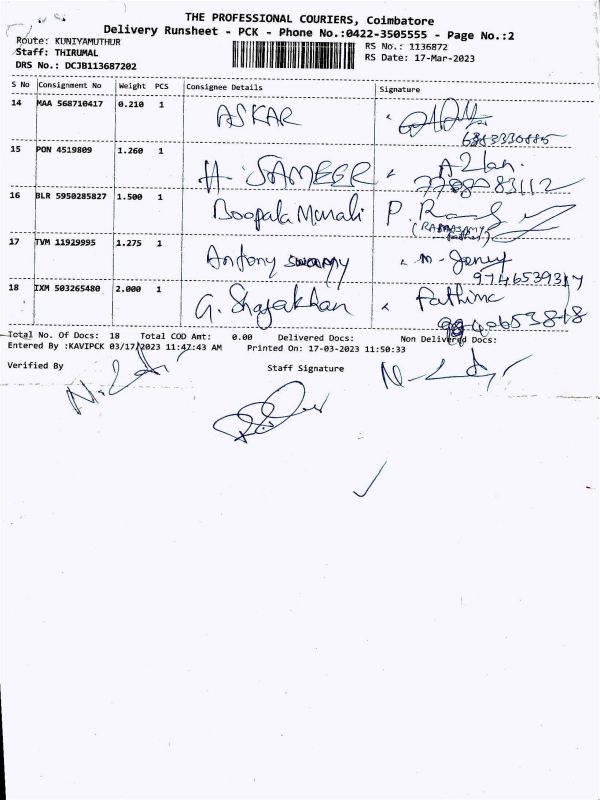 THE PROFESSIONAL COURIERS, Coimbatore
Delivery Runsheet - PCK - Phone No.:0422-3505555 - Page No.:2
Route: KUNIYAMUTHUR
RS No.: 1136872
Staff: THIRUMAL
RS Date: 17-Mar-2023
DRS No.: DCJB113687202
S No Consignment No Weight PCS Consignee Details Signature
14 MAA 568710417 0.210 1 ASKAR
15 PON 4519809 1.260 1 H. SAMEER
16 BLR 5950285827 1.500 1 Boopala Murali P.
17 TVM 11929995 1.275 1 Antony swamy M. Jency
9746539317
18 IXM 503265480 2.000 1 G. Shajakhan Fathima
Total No. Of Docs: 18 Total COD Amt: 0.00 Delivered Docs: Non Delivered Docs:
Entered By :KAVIPCK 03/17/2023 11:47:43 AM Printed On: 17-03-2023 11:50:33
Verified By Staff Signature